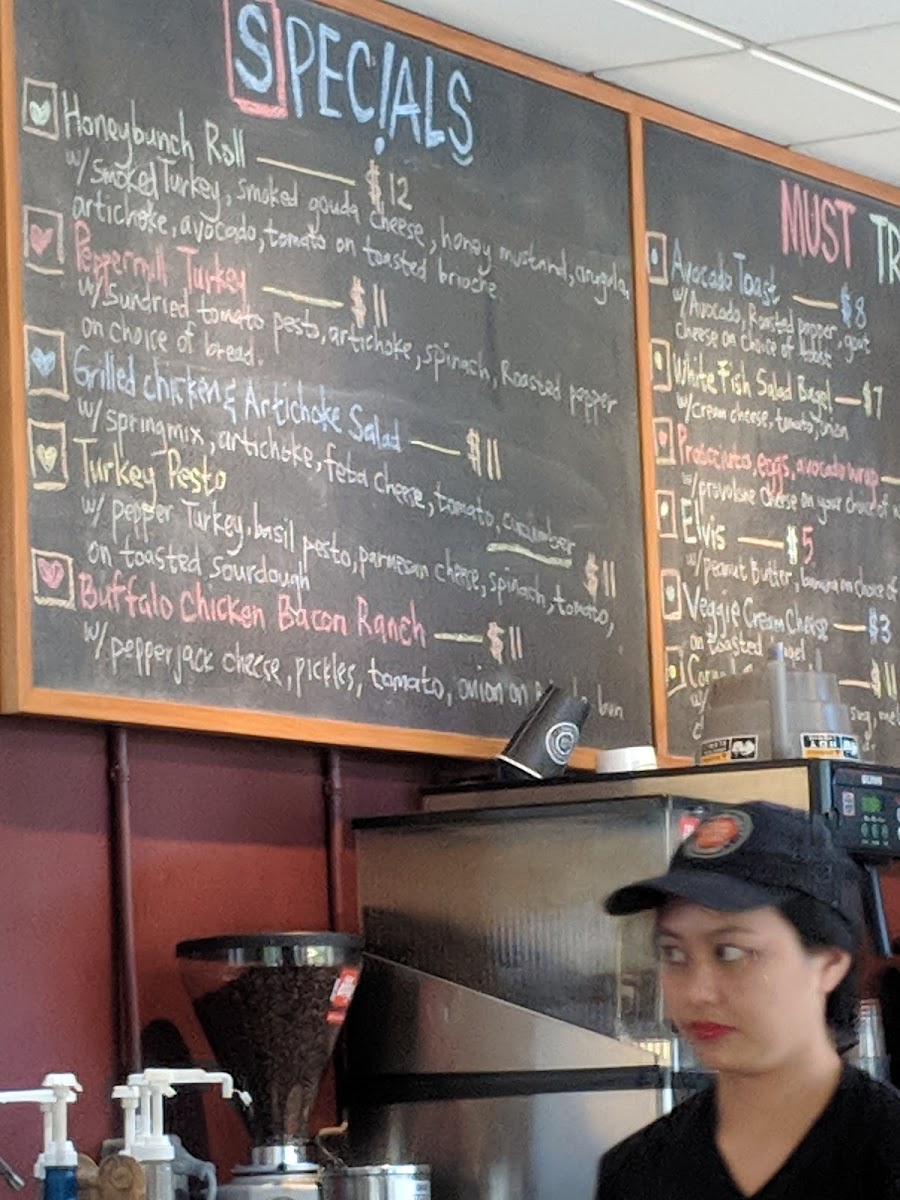 SPEC!ALS
Honeybunch Roll $12
w/ smoked Turkey, smoked gouda cheese, honey mustard, arugula,
artichoke, avocado, tomato on toasted brioche
Peppermill Turkey $11
w/ Sundried tomato pesto, artichoke, spinach, Roasted pepper
on choice of bread.
Grilled chicken & Artichoke Salad $11
w/ springmix, artichoke, feta cheese, tomato, cucumber
Turkey Pesto $11
w/ pepper Turkey, basil pesto, parmesan cheese, spinach, tomato,
on toasted sourdough
Buffalo Chicken Bacon Ranch $11
w/ pepperjack cheese, pickles, tomato, onion on bun
MUST TR
Avocado Toast $8
w/ Avocado, Roasted pepper, goat
cheese on choice of toast
White Fish Salad Bagel $7
w/ cream cheese, tomato, onion
Prosciutto, eggs, avocado wrap
w/ provolone cheese on your choice of w
Elvis $5
w/ peanut butter, banana on choice of
Veggie Cream Cheese $3
on toasted bagel
$11